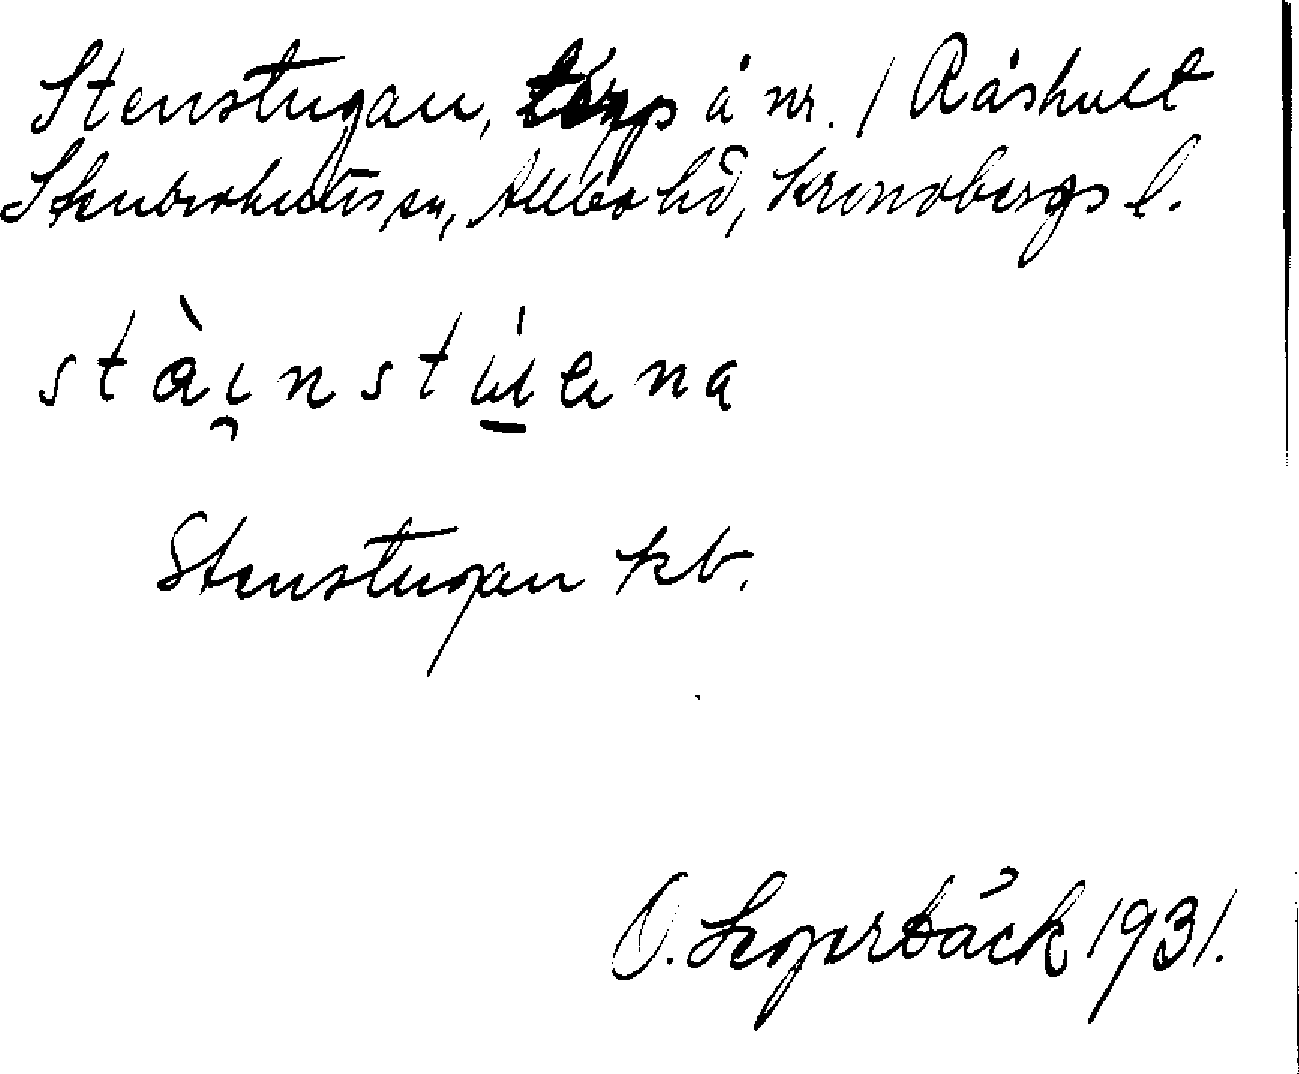 Stenstugan, torp å nr. 1 Råshult
Stenbrohults sn, Allbo hd, Kronobergs l.
stài̯nstu̲ena
Stenstugan kb.
O. Legerbäck 1931.